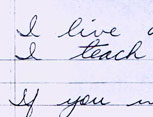 I live
I teach
If you